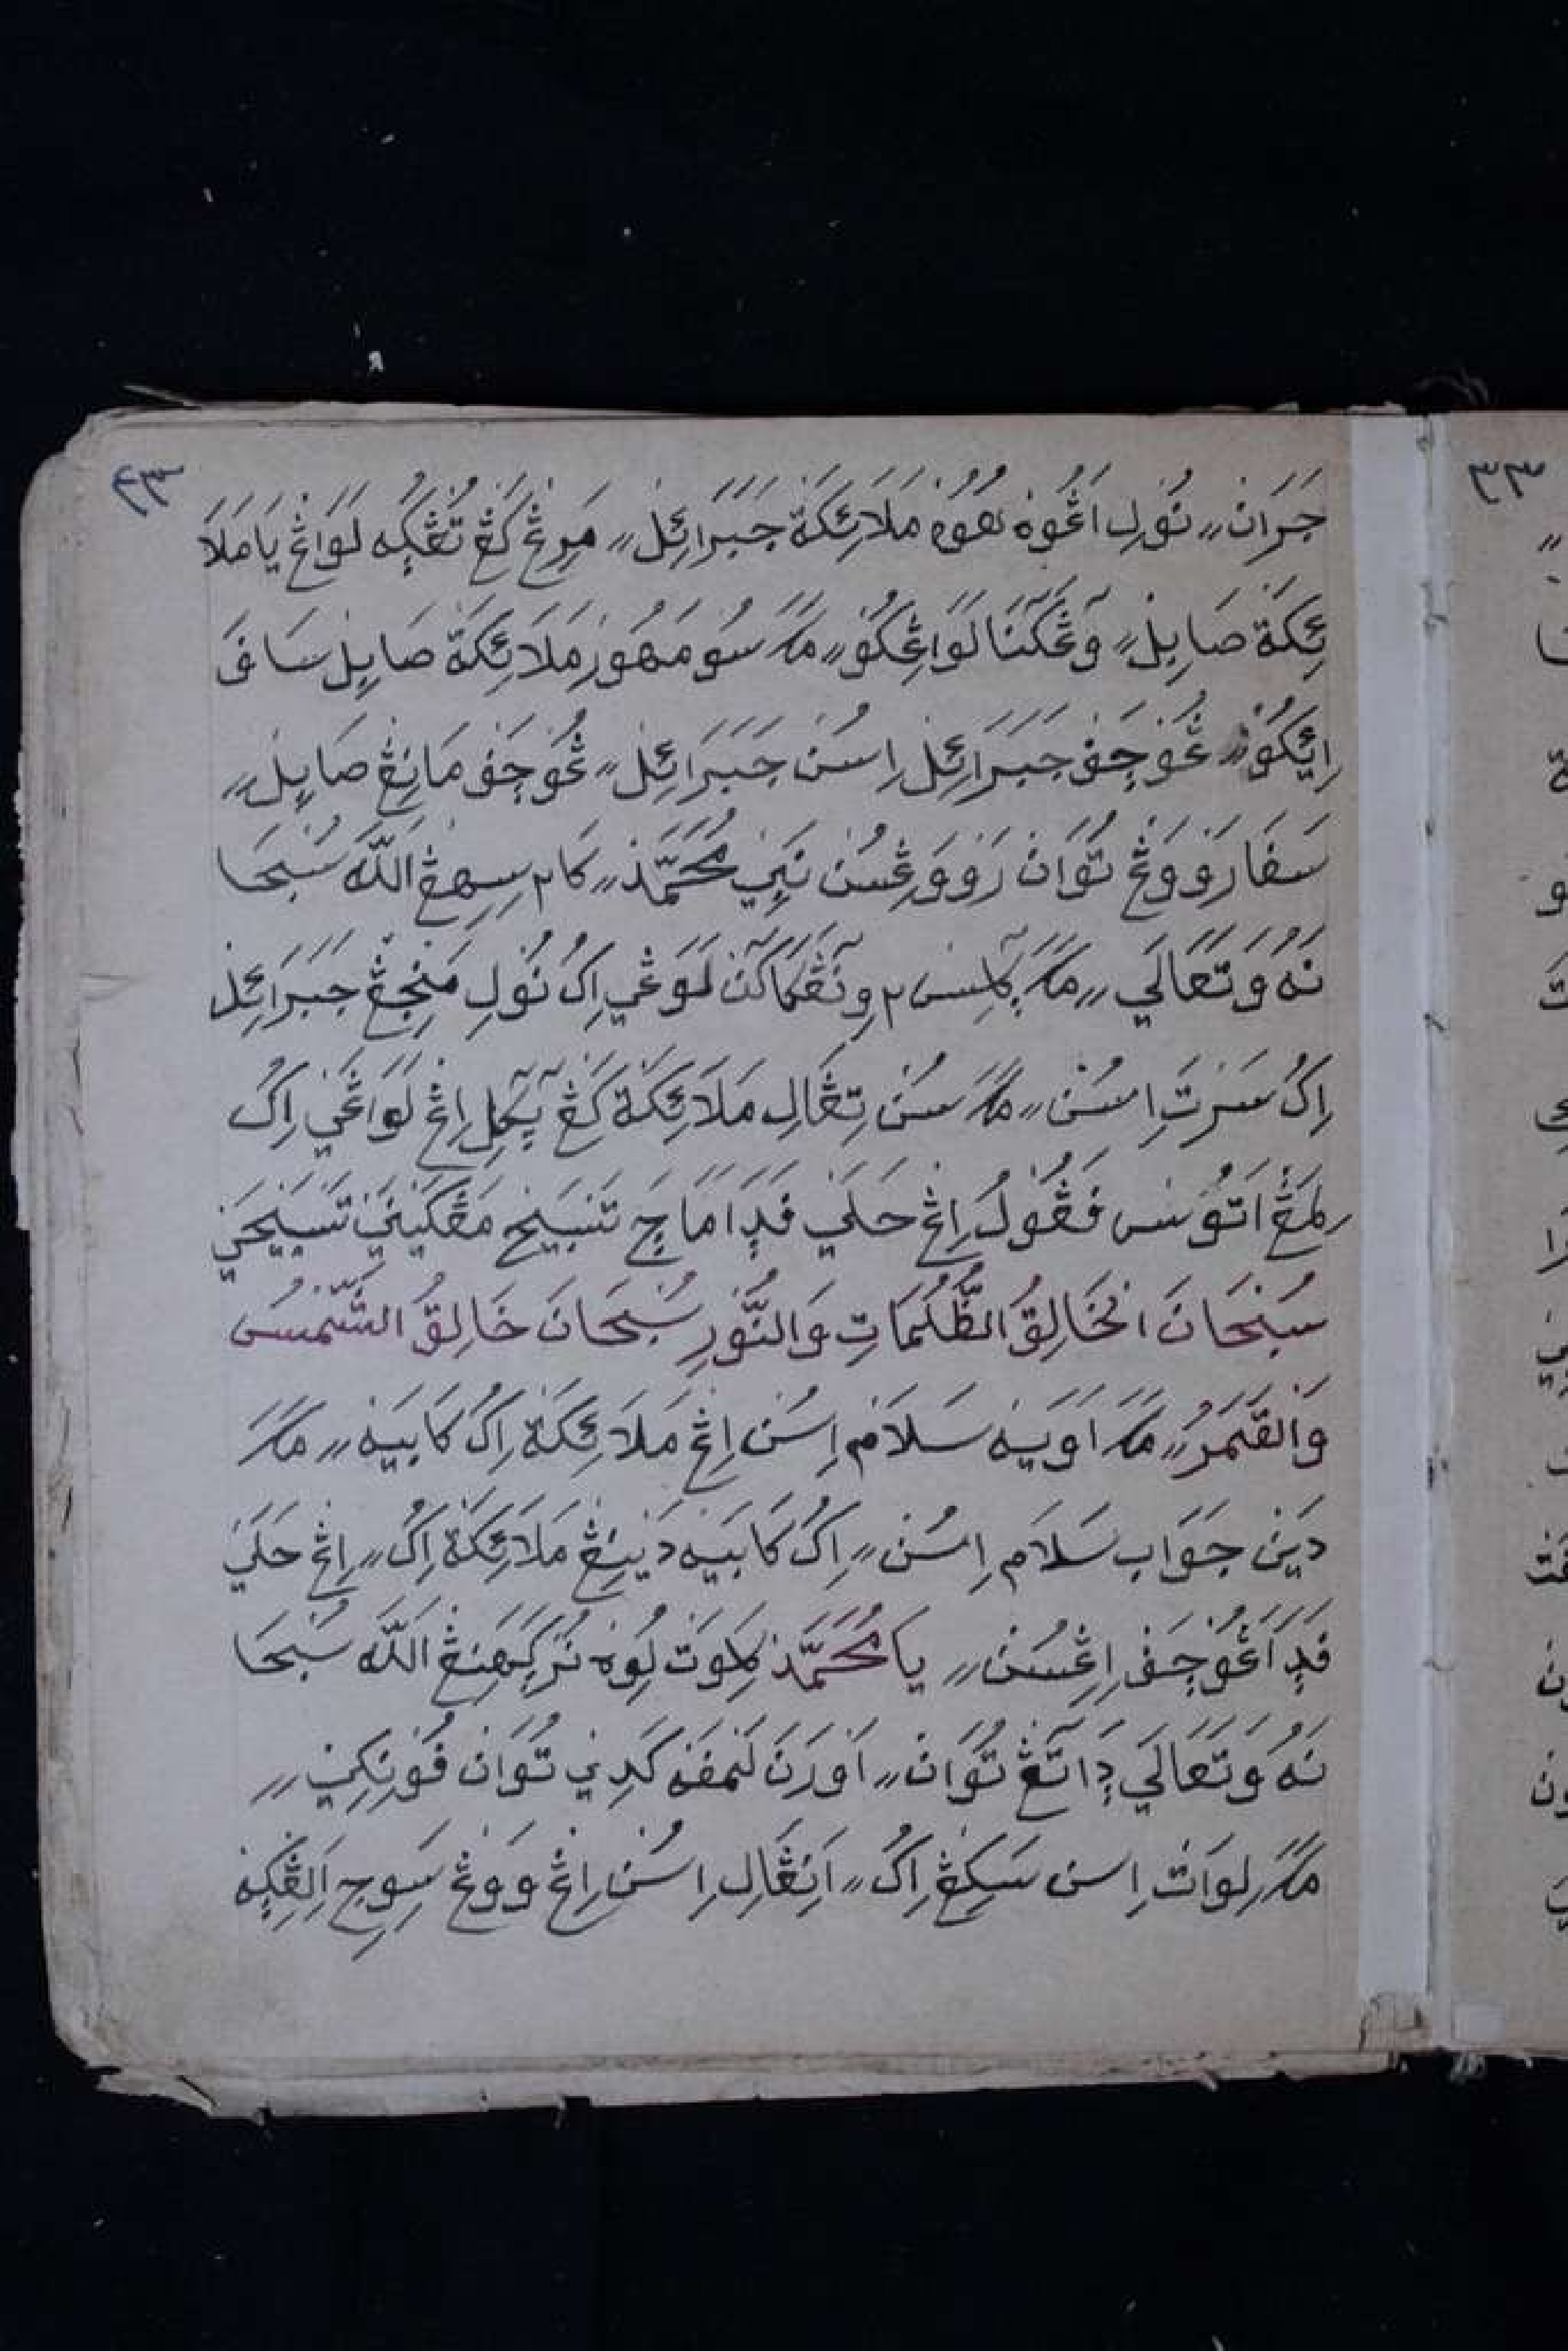 ٣٤
جَرَانْ٬٬ نُوْلِ اَڠُوهْ٢ مَلَائِكَةْ جَبَرَائِلْ٬٬ مَرِڠْ كَڠْ تُڠْكِه لَوَاڠْ يَا مَلَا
ئِكَةْ صَابِلْ٬٬ وَڠَكٓنَا لَوَاڠِكُوْ٬٬ مَكَ سُومَهُوْرِ مَلَائِكَةْ صَابِلْ سَافَ
اِيْكُوْ٬٬ ڠُوْجَفْ جَبَرَائِلْ اِسُنْ جَبَرَائِلْ٬٬ ڠُوْجَفْ مَانِڠْ صَابِلْ٬٬
سَفَا رَوْوَڠْ تُوَانْ رَوْوَڠِسُنْ نَبِيْ مُحَمَّدْ٬٬ كَام سِهِڠْ اللّٰهْ سُبْحَا
نَهُ وَتَعَالَي٬٬ مَكَ وِنَڠَكَاكٓنْ لَوَڠِي اِكُ نُوْلِ مَنْجِڠْ جَبَرَائِلْ
اِكُ سَرْتَ اِسُنْ٬٬ مَكَ سُنْ تِڠَالِ مَلَائِكَةْ كَڠْ اِڠْ لَوَاڠَيْ اِكُ
لِمَڠْ اَتُوْسْ فَڠُوْلُ اِڠْ حَلَيْ فَدَا مَاجَ تَسْبِيحْ مَڠْكَيْنَيْ تَسْبِيحَيْ
سُبْحَانَ الْخَالِقُ الظُّلُمَاتِ وَالنُّوْرِ سُبْحَانَ خَالِقُ الشَّمْسُ
وَالْقَمَرُ٬٬ مَكَ اَوَيْهْ سَلَامْ اِسُنْ اِڠْ مَلَائِكَةْ اِكُ كَابَيْهْ٬٬ مَكَ
دَيْنْ جَوَابْ سَلَامْ اِسُنْ٬٬ اِكُ كَابَيْهْ دَيْنِڠْ مَلَائِكَةْ اِكُ٬٬ اِڠْ حَلَيْ
فَدَا ڠُوْجَفْ اِڠِسُنْ٬٬ يَا مُحَمَّدْ لُوِهْ نُڮْرَهَنِڠْ اللّٰهْ سُبْحَا
نَهُ وَتَعَالَي دَاتَڠْ تُوَانْ٬٬ اَوْرَنَ لَنْفَهْ كَدِيْ تُوَانْ فُوْنِكِيْ٬٬
مَكَ لِوَاتْ اِسُنْ سَكِڠْ اِكُ٬٬ اَنِڠَالِ اِسُنْ اِڠْ وَوَڠْ سَوِجِ اَلِڠْكِهْ